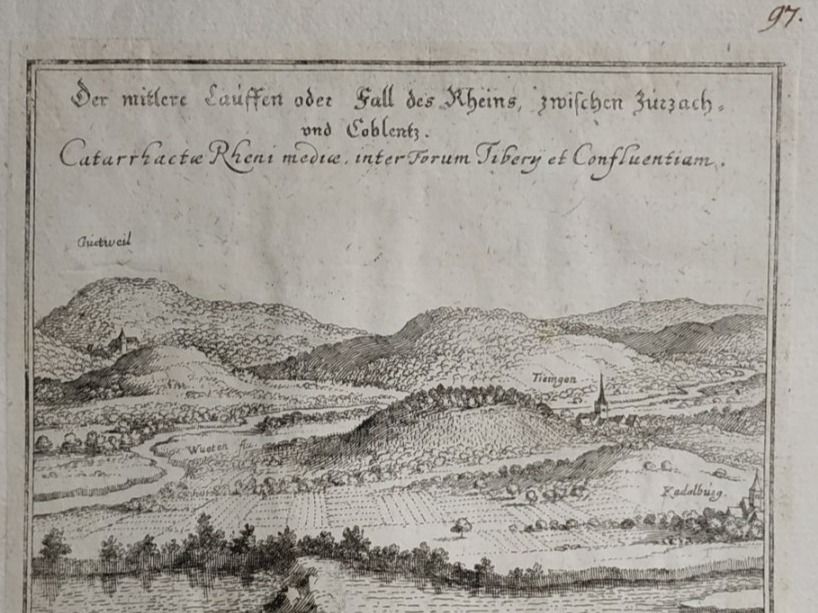 97.
Der mitlere Lauffen oder Fall des Rheins, zwischen Zurzach-
vnd Coblentz.
Catarrhactæ Rheni mediæ, inter Forum Tibery et Confluentiam.
Gutweil
Tiengen
Wueten flu
Kadelburg.